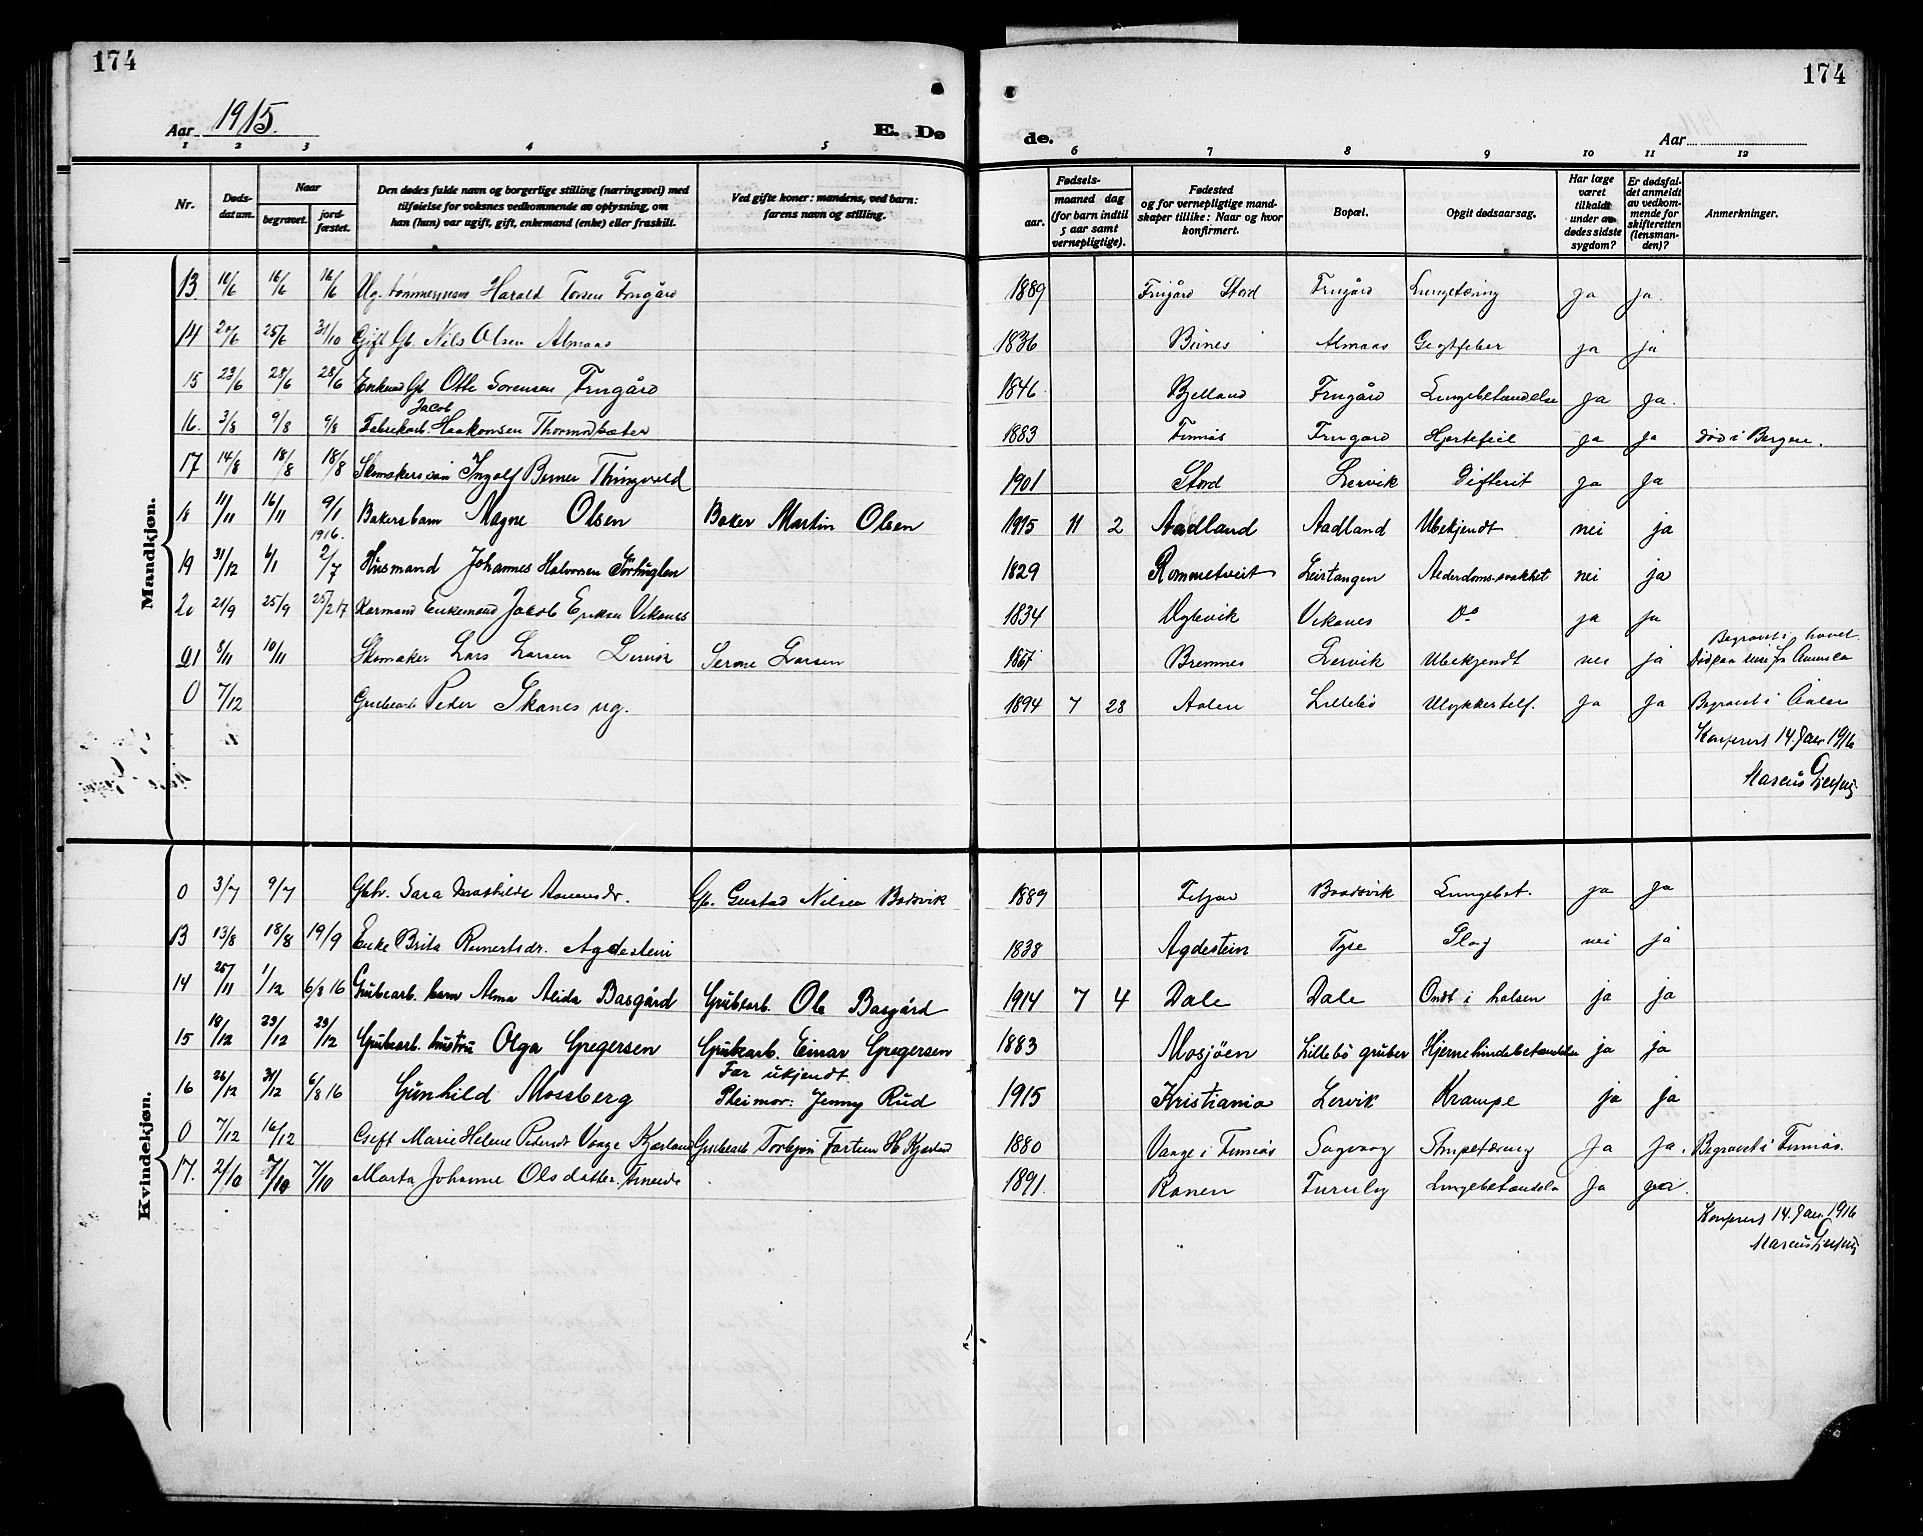 174
174
Aar 1915.
E. Dø
de.
Aar
1 2 3 4 5 6 7 8 9 10 11 12
Nr.
Døds-
datum.
Naar
begravet.
jord-
fæstet.
Den dødes fulde navn og borgerlige stilling (næringsvei) med
tilføielse for voksnes vedkommende av oplysning, om
han (hun) var ugift, gift, enkemand (enke) eller fraskilt.
Ved gifte koner: mandens, ved barn:
farens navn og stilling.
Fødsels-
aar.
maaned dag
(for barn indtil
5 aar samt
vernepligtige).
Fødested
og for vernepligtige mand-
skaper tillike: Naar og hvor
konfirmert.
Bopæl.
Opgit dødsaarsag.
Har læge
været
tilkaldt
under den
dødes sidste
sygdom?
Er dødsfal-
det anmeldt
av vedkom-
mende for
skifteretten
(lensman-
den)?
Anmerkninger.
Mandkjøn.
13 16/6 16/6 Ug. tømmermann Harald Frugård 1889 Frugård Stord Frugård Lungetæring ja ja.
14 20/6 25/6 31/10 Gift Gb. Nils Olsen Almaas 1836 Almaas Gigtfeber ja ja
15 23/6 28/6 28/6 Enkem. Gb Otte Sørensen Frugård 1846 Bjelland Frugård Lungebetændelse ja ja.
Jacob
16. 3/8 9/8 9/8 Fabrikarb. Haakonsen Thormodsæter 1883 Finnås Frugård Hjertefeil ja ja død i Bergen.
17 14/8 18/8 18/8 Skomakersvein Ingolf Berner Thingvold 1901 Stord Lervik Difterit ja ja
18 11/11 16/11 9/1 Bakersbarn Magne Olsen Baker Martin Olsen 1915 11 2 Aadland Aadland Ubekjendt nei ja
1916.
19 31/12 6/1 2/7 Husmand Johannes Halvorsen 1829 Rommetveit Leirtangen Alderdomssvakhet nei ja
20 21/9 25/9 25/2 17 Enkemand Jacob Eriksen Vikanes 1834 Vikanes Do ja ja
Begravet i havet.
21 8/11 10/11 Skomaker Lars Larsen Lervik Serine Larsen 1867 Bremnes Lervik Ubekjendt nei ja Amerika
0 7/12 Grubearb Peder Skanes ug. 1894 7 28 Aalen Lillebö Ulykkestilf. ja ja Begravet i Aalen
Konferert 14. Jan 1916
Kvindekjøn.
0 3/7 9/7 Gbhr. Sara Mathilde Gb. Gustav Nilsen Bodsvik 1889 Fitjar Bodsvik Lungebet. ja ja
13 13/8 18/8 19/9 Enke Brita Reinertsdr. Agdestein 1838 Agdestein Tyse Slag nei ja
14 25/11 1/12 6/8 16 Grubearb. barn Alma Alida Basgård Grubearb. Ole Basgård 1914 7 4 Dale Dale Ondt i halsen ja ja
15 18/12 23/12 23/12 Grubearb. hustru Olga Gregersen Grubearb. Einar Gregersen 1883 Mosjöen Lillebö gruber Hjernehindebetændelse ja ja
Far ukjendt.
16 26/12 31/12 6/8 16 Gunhild Mossberg Pleimor: Jenny Rud 1915 Kristiania Lervik Krampe ja ja
0 7/12 16/12 Gift Marie Helene Pedersdt Vaage Kjærland Grubearb Torbjørn H. Kjærland 1880 Vaage i Finnås Sagvaag ja ja. Begravet i Finnås.
17. 2/10 7/10 7/10 Marta Johanne Olsdatter 1891 Ranen Furuly Lungebetændelse ja ja.
Konferert 14. Jan. 1916